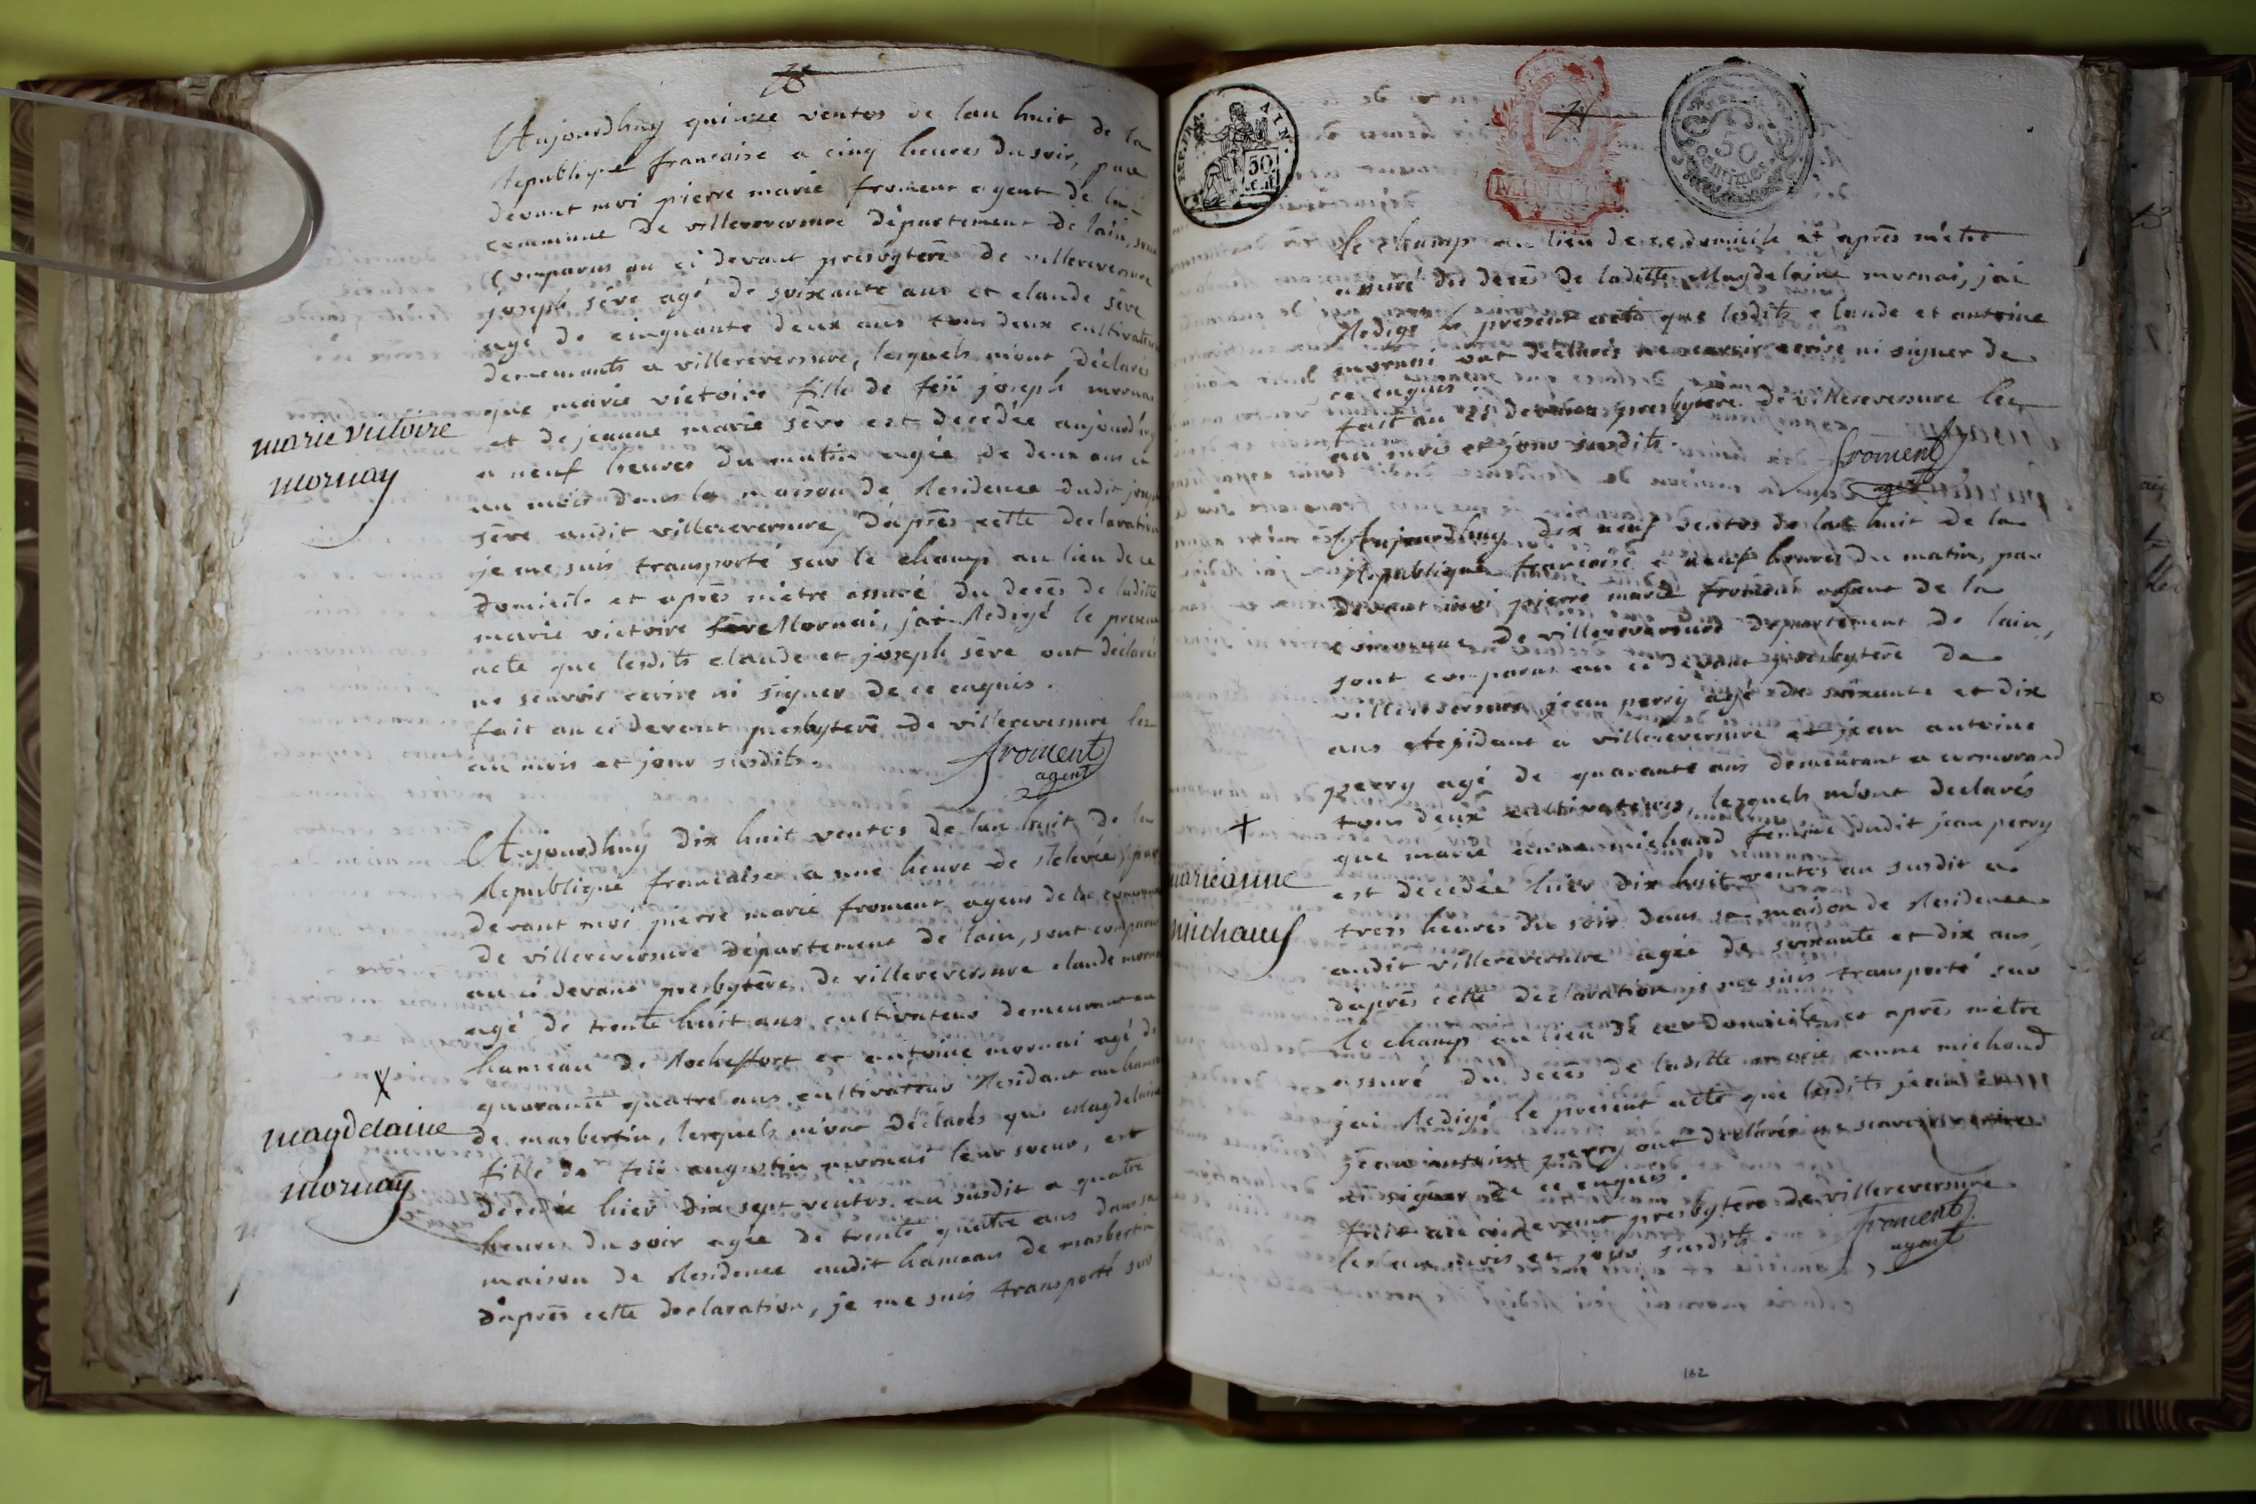 18
Aujourdhuy quinze ventos de lan huit de la
Republique francaise a cinq heures du soir, par
devant moi pierre marie froment agent de la
commune de villereversure département de lain, sont
comparus au ci devant presbyterè de villereversure
joseph séve agé de soixante ans et claude séve
agé de cinquante deux ans tous deux cultivateurs
demeurants a villereversure, lesquels m'ont déclarés
que marie victoire fille de feü joseph mornai
et de jeanne marie séve est decedée aujourd'huy
a neuf heures du matin agée de deux ans et
un mois dans la maison de Residence dudit joseph
séve audit villereversure, d'aprés cette declaration
je me suis transporté sur le champ au lieu de ce
domicile et aprés mètre assuré du decés de laditte
marie victoire Mornai, jai Redigé le present
acte que lesdits claude et joseph séve ont déclarés
ne scavoir ecrire ni signer de ce enquis.
fait au ci devant presbyterè de villereversure les
an mois et jour susdits.
froment
agent
marie victoire
mornay
Aujourdhuy dix huit ventos de lan huit de la
Republique francaise a une heure de Relevée, par
devant moi pierre marie froment agent de la commune
de villereversure département de lain, sont comparus
au ci devant presbyterè de villereversure claude mornai
agé de trente huit ans cultivateur demeurant au
hameau de Rocheffort et antoine mornai agé de
quarante quatre ans cultivateur Residant au hameau
de masbertin, lesquels m'ont déclarés que Magdelaine
fille de feü augustin mornai leur soeur, est
decedée hier dix sept ventos an susdit a quatre
heures du soir agée de trente quatre ans dans sa
maison de Residence audit hameau de masbertin
d'aprés cette declaration, je me suis transporté sur
magdelaine
mornay
REP. FRA.
AIN.
50
cent.
50
centimes
le champ au lieu de ce domicile et aprés mètre
assuré du decés de laditte Magdelaine mornai, jai
Redigé le present acte que lesdits claude et antoine
mornai ont déclarés ne scavoir ecrire ni signer de
ce enquis.
fait au ci devant presbytere de villereversure les
an mois et jour susdits.
froment
agent
Aujourdhuy dix neuf ventos de lan huit de la
Republique francaise a neuf heures du matin, par
devant moi pierre marie froment agent de la
commune de villereversure département de lain,
sont comparus au ci devant presbyterè de
villereversure jean perry agé de soixante et dix
ans Residant a villereversure et jean antoine
perry agé de quarante ans demeurant a cormorand
tous deux cultivateurs, lesquels m'ont declarés
que marie anne michaud femme dudit jean perry
est decedée hier dix huit ventos an susdit a
trois heures du soir dans sa maison de Residence
audit villereversure agée de soixante et dix ans,
d'aprés cette declaration je me suis transporté sur
le champ au lieu de ce domicile et aprés mètre
assuré du decés de laditte marie anne michaud
jai Redigé le present acte que lesdits jean et
jean antoine perry ont déclarés ne scavoir ecrire
ni signer de ce enquis.
fait au ci devant presbyterè de villereversure
les an mois et jour susdits.
froment
agent
marie anne
michaud
162